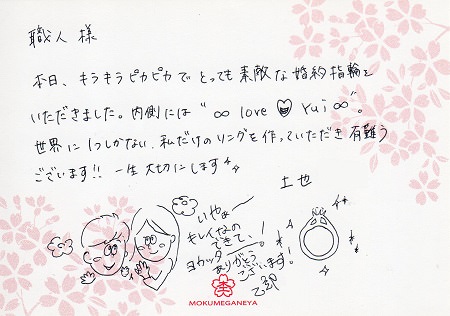 職人様
本日、キラキラピカピカでとっても素敵な婚約指輪を
いただきました。内側には"∞ love ♡ Yui ∞"。
世界に1つしかない、私だけのリングを作っていただき有難う
ございます!! 一生大切にします
いやぁー
キレイなの
できて、
ヨカッター!
ありがとう
ございます!
MOKUMEGANEYA